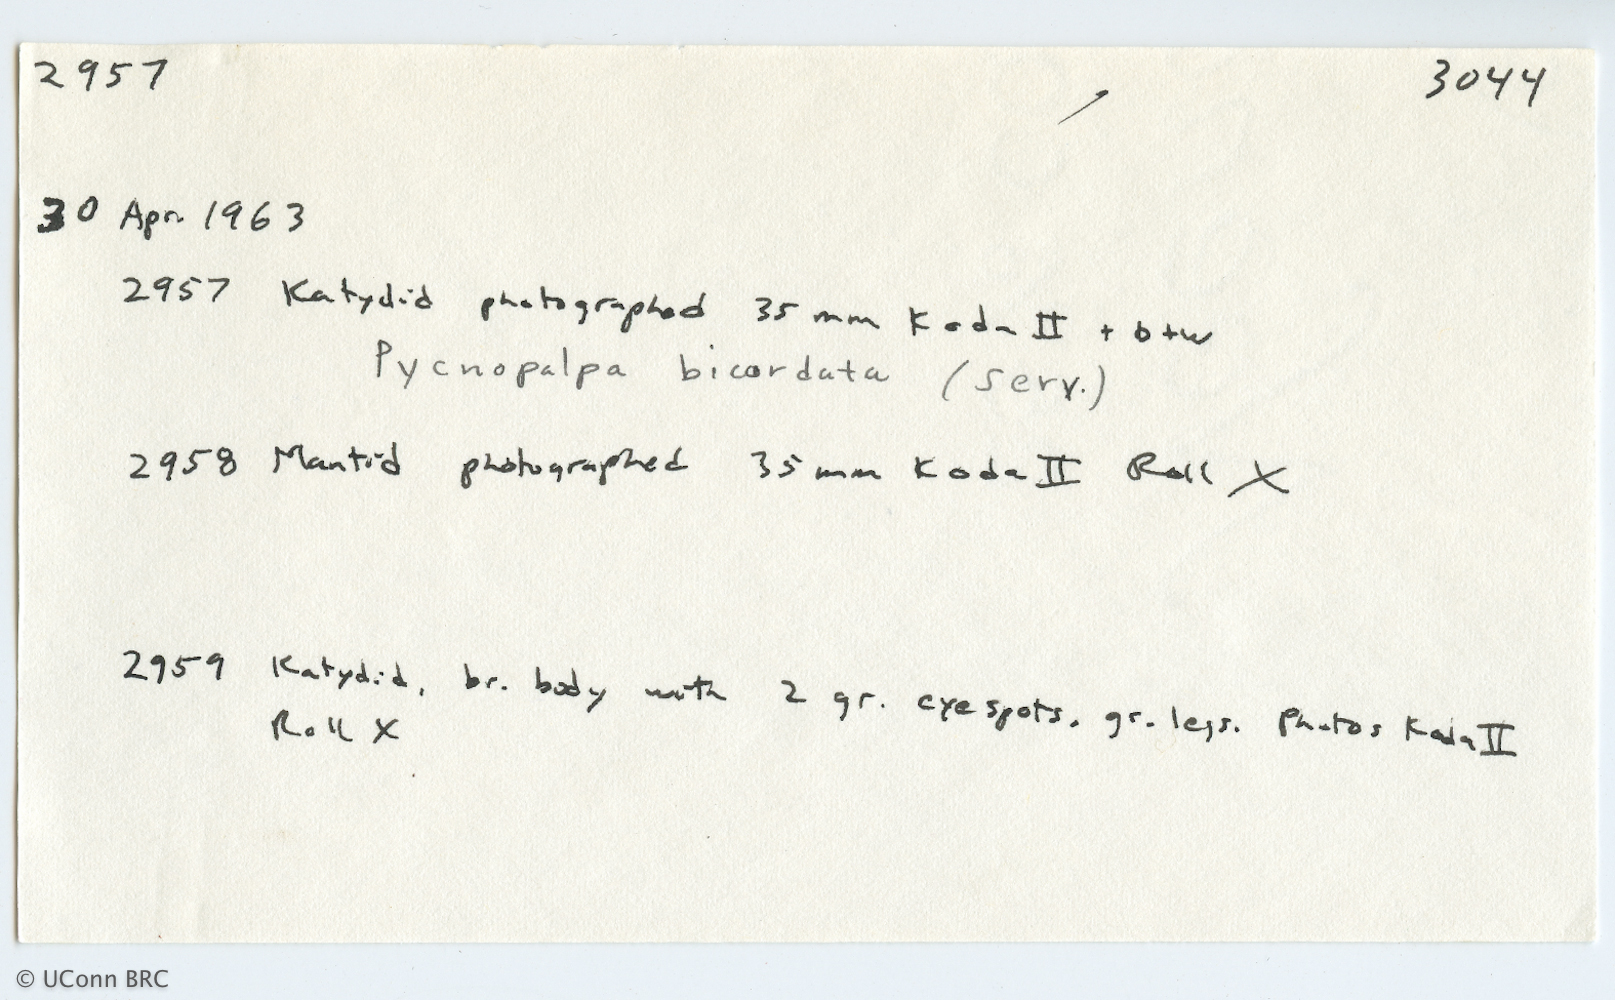 2957 3044
30 Apr. 1963
2957 Katydid photographed 35 mm Koda II + b+w
Pycnopalpa bicordata (Serv.)
2958 Mantid photographed 35 mm Koda II Roll X
2959 Katydid, br. body with 2 gr. eyespots, gr. legs. Photos Koda II
Roll X
© UConn BRC